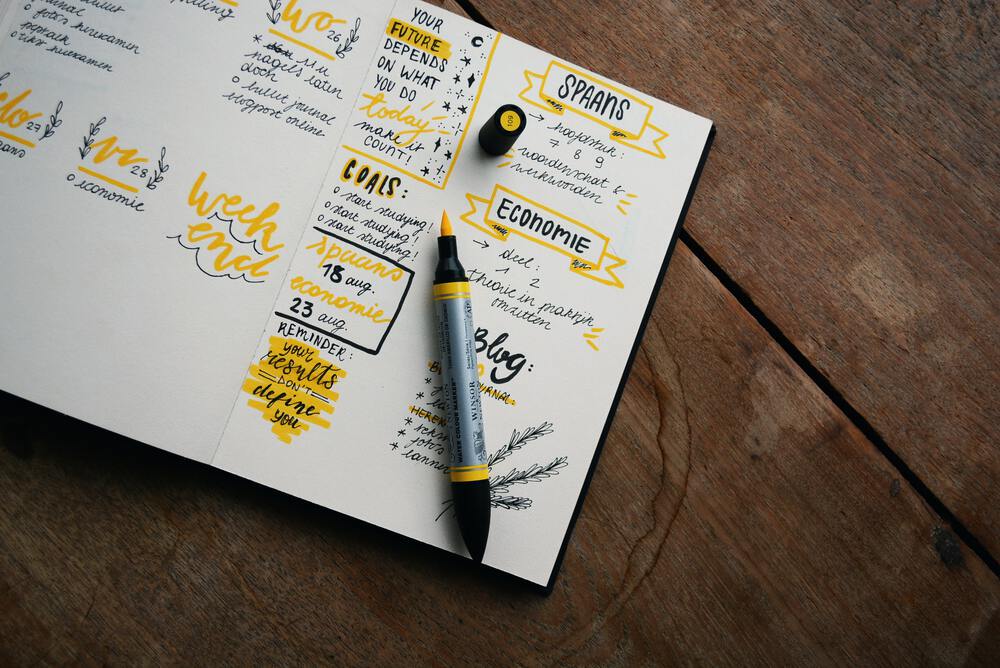 o foto's herexamen
herexamen
wo 26
* 11u
nagels laten
doen
o bullet journal
blogpost online
do 27
vr 28
o economie
week
end
YOUR
FUTURE
DEPENDS
ON WHAT
YOU DO
today
make it
COUNT!
GOALS:
o start studying!
o start studying!
o start studying!
spaans
18 aug.
economie
23 aug.
REMINDER:
your
results
DON'T
define
you
SPAANS
→ hoofdstuk:
7 8 9
woordenschat &
werkwoorden
ECONOMIE
→ deel:
1 2
theorie in praktijk
omzetten
Blog:
JOURNAL:
HEREX
*
* foto's
*
109
WATER COLOUR MARKER
WINSOR